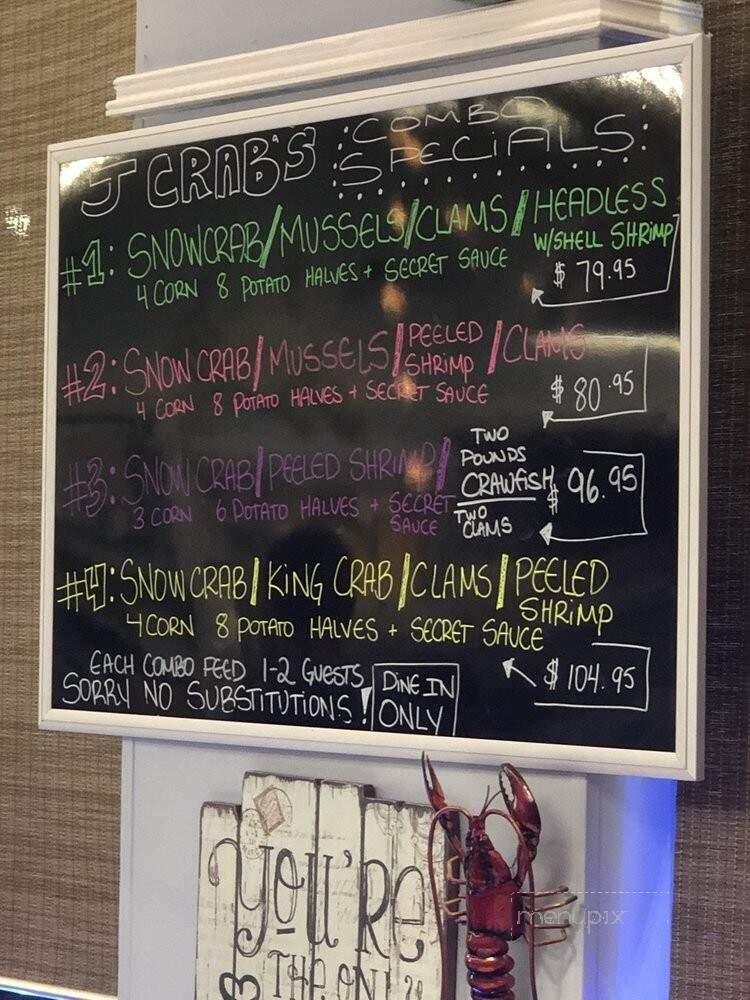 J CRAB'S
COMBO
SPECIALS
#1: SNOWCRAB/MUSSELS/CLAMS/HEADLESS
W/SHELL SHRIMP
4 CORN 8 POTATO HALVES + SECRET SAUCE
$ 79.95
#2: SNOW CRAB/MUSSELS/PEELED SHRIMP/CLAMS
4 CORN 8 POTATO HALVES + SECRET SAUCE
$ 80.95
#3: SNOW CRAB/PEELED SHRIMP/
TWO
POUNDS
CRAWFISH
TWO
CLAMS
3 CORN 6 POTATO HALVES + SECRET
SAUCE
$ 96.95
#4: SNOW CRAB/KING CRAB/CLAMS/PEELED
SHRIMP
4 CORN 8 POTATO HALVES + SECRET SAUCE
$ 104.95
EACH COMBO FEED 1-2 GUESTS
SORRY NO SUBSTITUTIONS!
DINE IN
ONLY
YOU'RE
THE ONLY
menupix